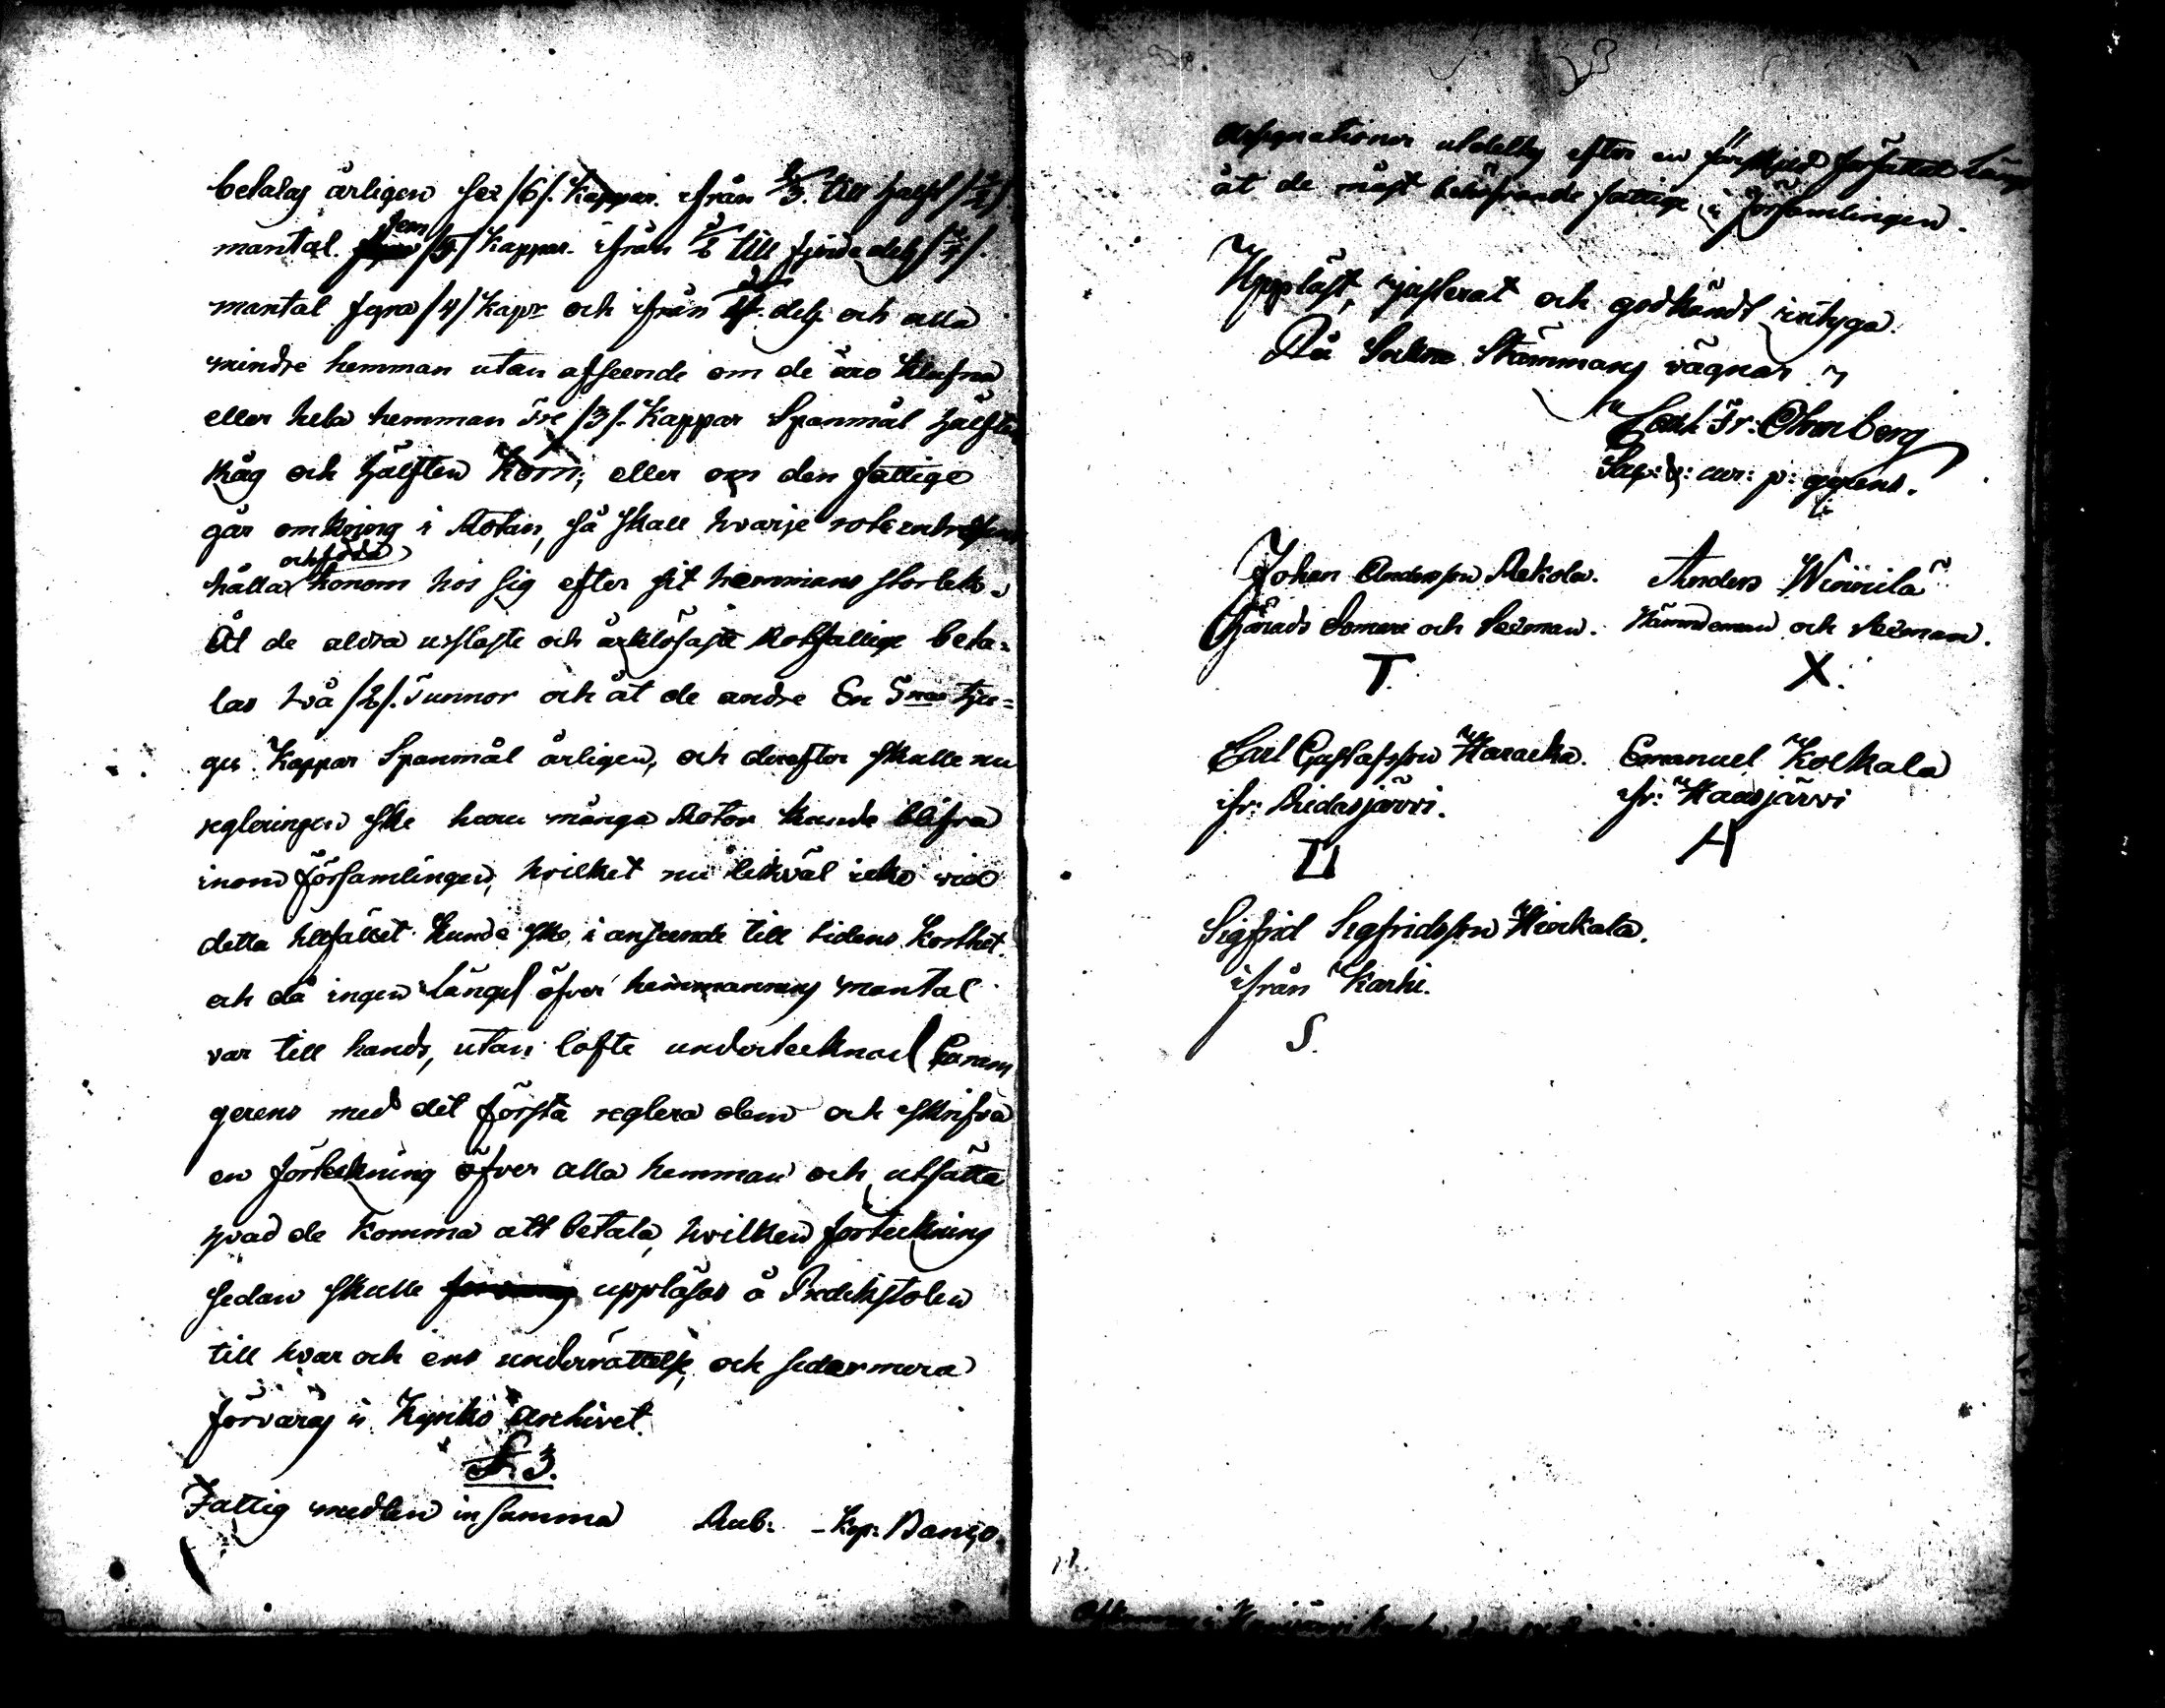 betalas årligen sex /6/. Kappar. ifrån 2/3. till halft /1/2/
mantal. fem /5/ Kappar. ifrån 1/2 till fjerdedels /1/4/.
mantal fyra /4/ Kapr och ifrån dels och alla
mindre hemman utan afseende om de äro klufna
eller hela hemman tre /3/. Kappar Spanmål hälften
Råg och hälften Korn; eller om den fattige
går omkring i Rotan, så skall hvarje rote
hålla och föda honom hos sig efter sit hemmans storlek.
Åt de aldra uslaste och Rotfattige beta-
las två /2/. Tunnor och åt de andre En Tna tju-
gu Kappar Spanmål årligen, och derefter skulle nu
regleringen ske huru många Rotor kunde blifva
inom församlingen, hvilket nu likväl icke vid
detta tillfället kunde ske i anseende till tidens korthet.
och då ingen längd öfver hemmanens mantal
var till hands, utan lofte undertecknad
gerens med det första reglera dem och skrifva
en förteckning öfver alla hemman och utsätta
hvad de komma att betala, hvilken förteckning
sedan skulle uppläsas å Predikstolen
till hvar och ens underrättelse, och sedermera
förvaras i Kyrko Archivet.
§. 3.
Fattig medlen in summa Rub: - Kop: Banco.
Assignationer utdeltes efter en författad Läng
åt de mäst behöfvande fattige i Församlingen.
Uppläst, justerat och godkändt intyga
På Sockne Stämmans vägnar
Carl Fr: Ohrnberg
Sac: cur: p: gerens.
Johan Andersson Rekola. Anders Winnilä
Härads Domare och Sexman. Nämndeman och Sexman.
T. X.
Carl Gustafsson Haracka. Emanuel Kolkala
ifr: Ridasjärvi. ifr: Haasjärvi
H
Sigfrid Sigfridsson Hirckala.
ifrån Karhi.
S.